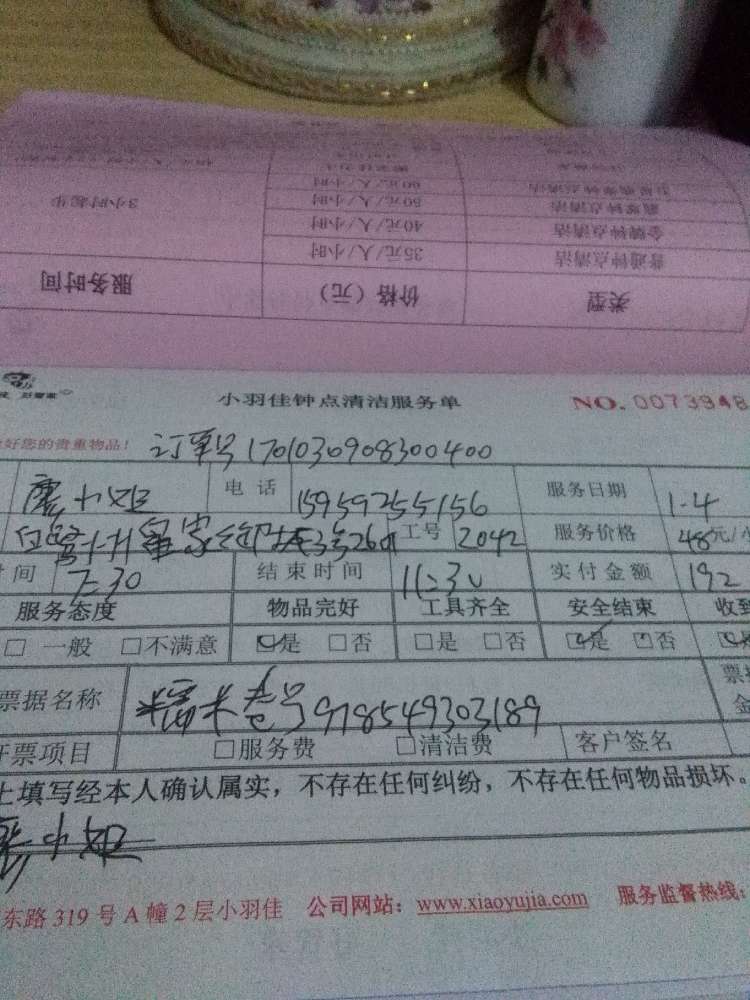 3小时起步
60元/人/小时
50元/人/小时
40元/人/小时
35元/人/小时
金牌钟点清洁
普通钟点清洁
服务时间 价格（元） 类型
小羽佳钟点清洁服务单 NO. 0073948
好您的贵重物品！ 订单号1701030908300400
廖小姐 电话 15959255156 服务日期 1-4
工号 2042 服务价格 48元/小
时间 7:30 结束时间 11:30 实付金额 192
服务态度 物品完好 工具齐全 安全结束 收到
□ 一般 □不满意 ☑是 □否 □是 □否 ☑是 □否
票据名称 糯米卷号918549303189 票
金
开票项目 □服务费 □清洁费 客户签名
上填写经本人确认属实，不存在任何纠纷，不存在任何物品损坏。
廖小姐
东路 319 号 A 幢 2 层小羽佳 公司网站：www.xiaoyujia.com 服务监督热线：